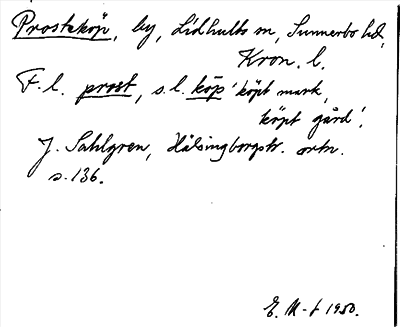 Prosteköp, by, Lidhults sn, Sunnerbo hd,
Kron. l.
F. l. prost, s. l. köp 'köpt mark,
köpt gård'.
J. Sahlgren, Hälsingborgstr. ortn.
s. 136.
E. M-f 1950.